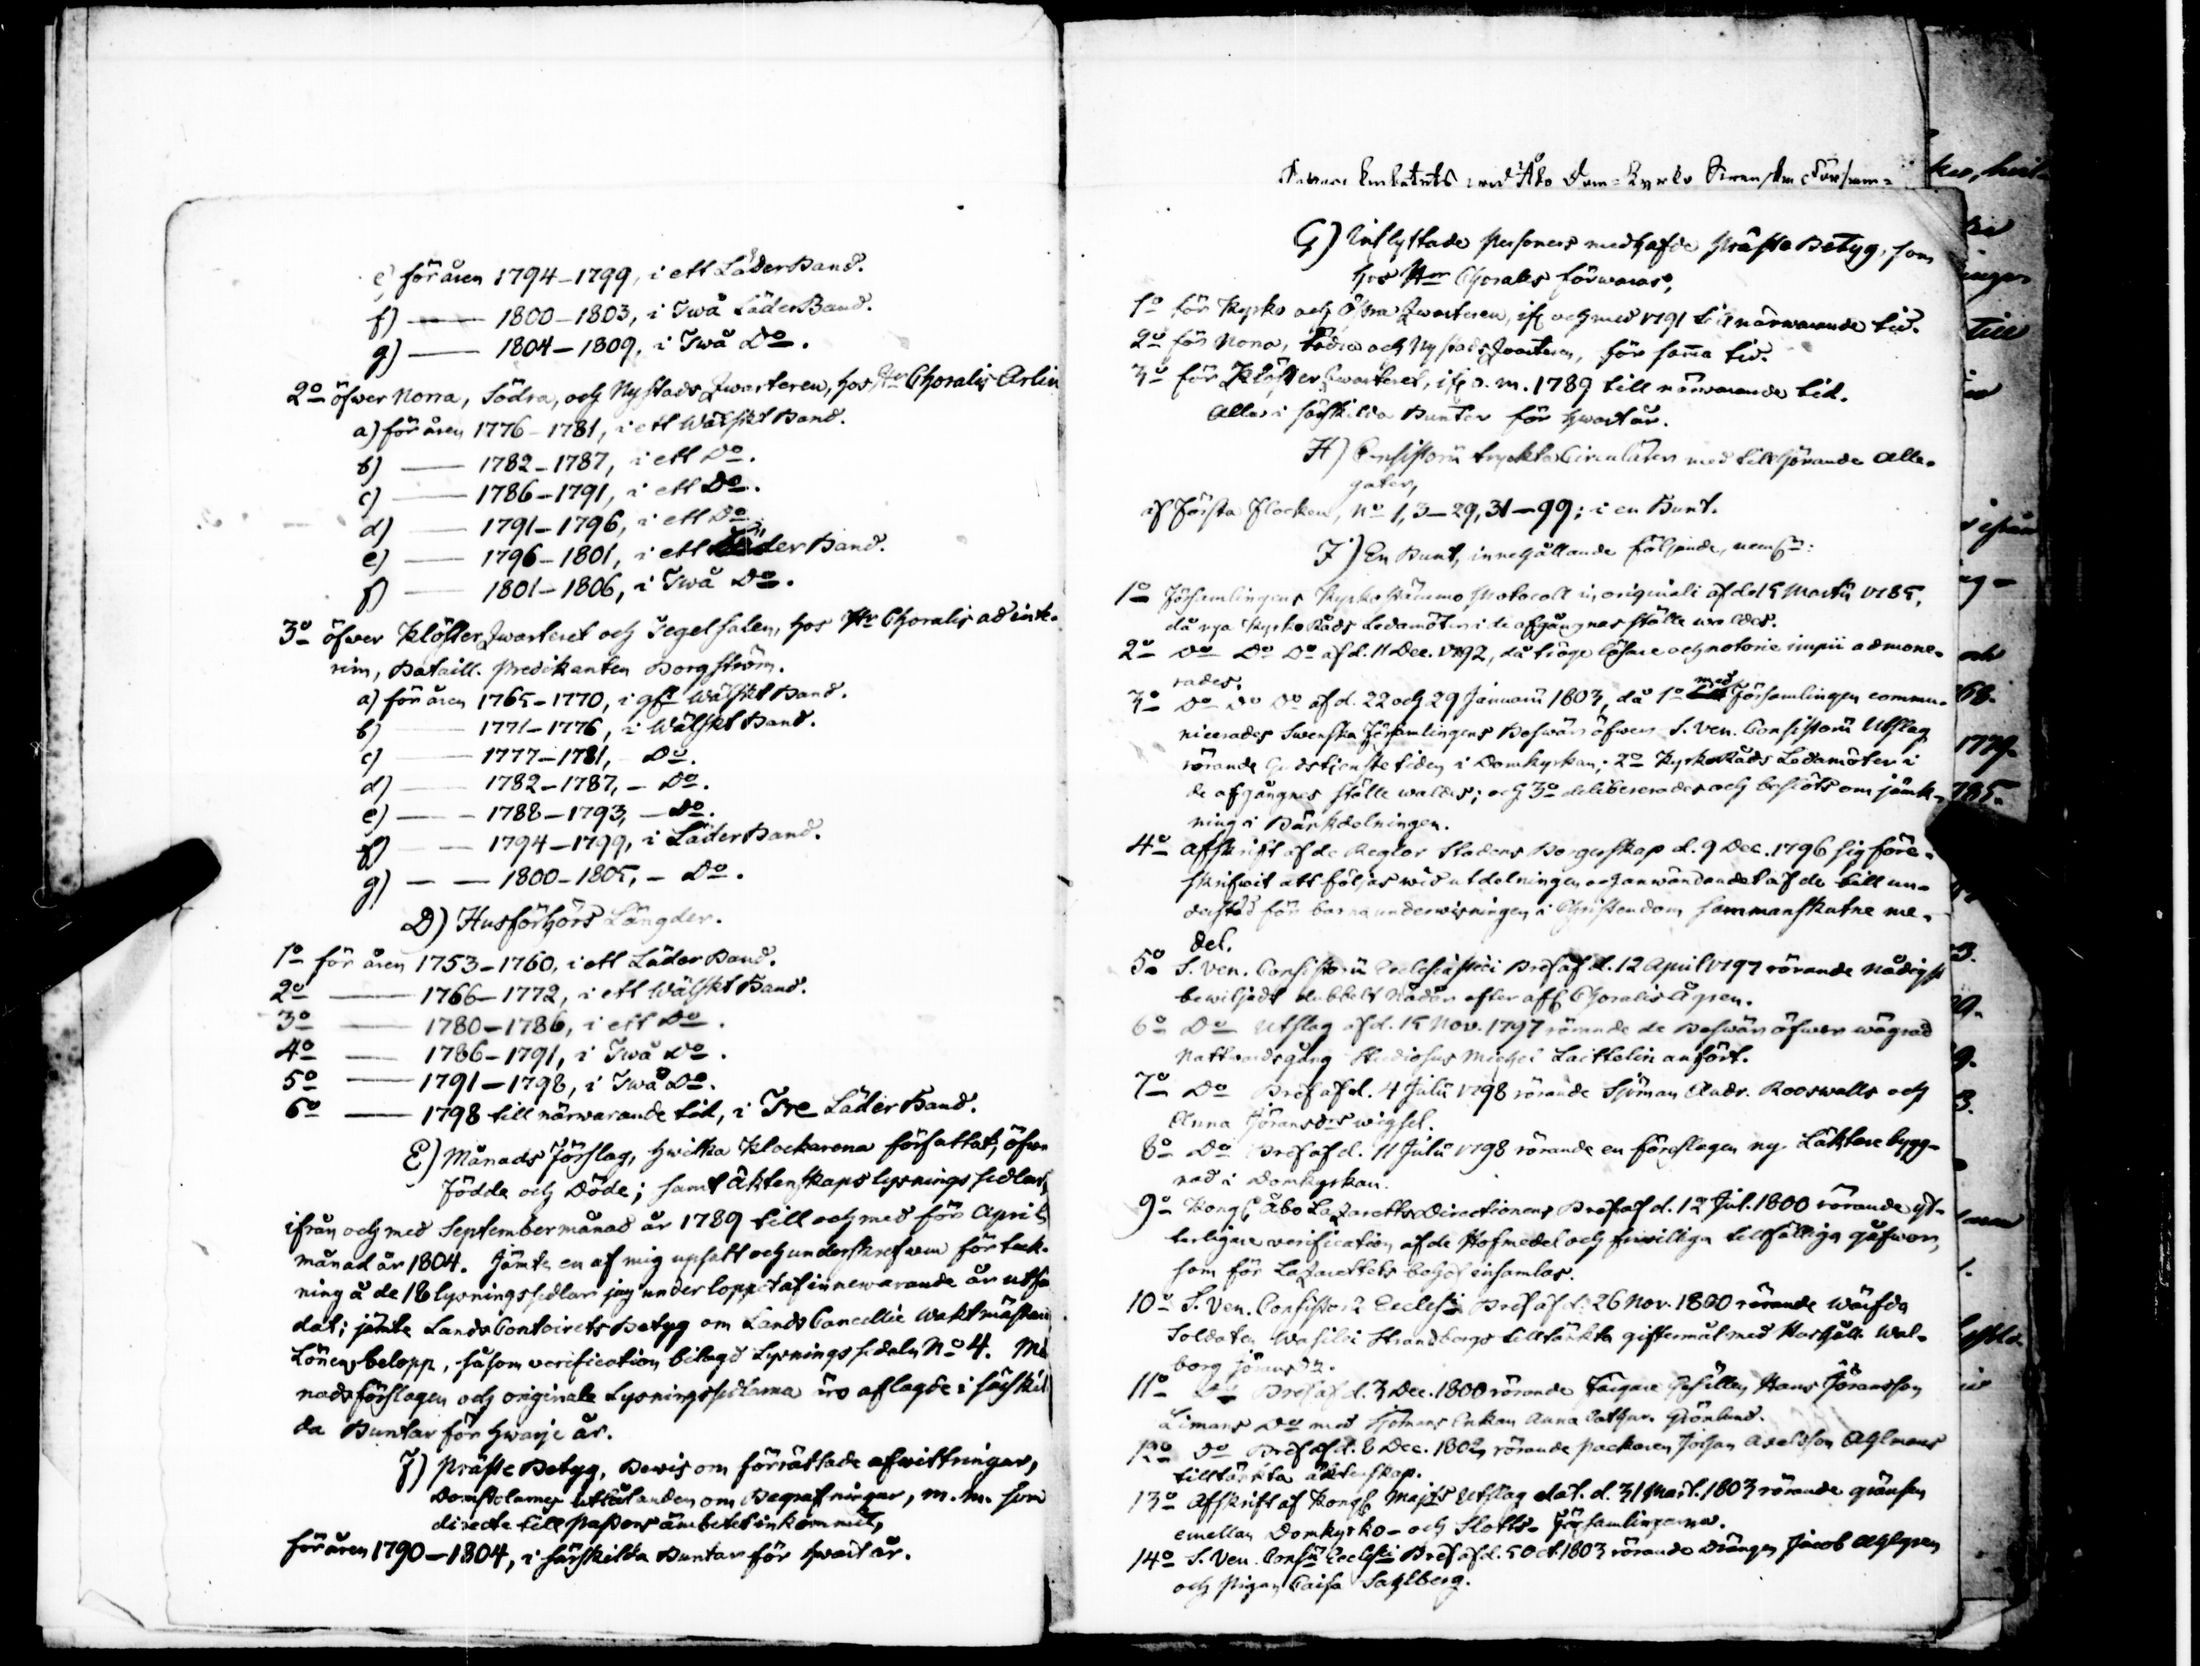 e) för åren 1794-1799, i ett Läder Band.
f) —— 1800-1803, i Twå Läder Band.
g) —— 1804-1809, i Twå Do.
2o öfwer Norra, Södra, och Nystads Qwarteren, hos Hr Choralis Arlin
a) för åren 1776-1781, i ett Wälskt Band.
b) —— 1782-1787, i ett Do.
c) —— 1786-1791, i ett Do.
d) —— 1791-1796, i ett Do.
e) —— 1796-1801, i ett Läder Band.
f) —— 1801-1806, i Twå Do.
3o öfwer Klöster Qwarteret och Tegelsalen, hos Hr Choralis ad inte-
rim, Bataill. Predikanten Borgström.
a) för åren 1765-1770, i Wälskt Band.
b) —— 1771-1776, i Wälskt Band.
c) —— 1777-1781, Do.
d) —— 1782-1787, - Do.
e) —— 1788-1793, - Do.
f) —— 1794-1799, i Läder Band.
g) — — 1800-1805, - Do.
D) Husförhörs Längder.
1o för åren 1753-1760, i ett Läder Band.
2o —— 1766-1772, i ett Wälskt Band.
3o —— 1780-1786, i ett Do.
4o —— 1786-1791, i Twå Do.
5o —— 1791-1798, i Twå Do.
6o —— 1798 till närwarande tid, i Tre Läder Band.
E) Månads Förslag, hwilka Klockarena författat, öfwer
Födde och Döde; samt Äktenskaps lysnings sedlar,
ifrån och med September månad år 1789 till och med för April
månad år 1804. Jämte en af mig upsatt och underskrefwen förtek-
ning å de 18 lysningssedlar jag under loppet af innewarande år utfär
dat; jämte Lands Contoirets Betyg om Lands Cancellie Waktmästare
Lönens belopp, såsom verification bilagd Lysnings sedeln No 4. Må
nadsförslagen och originale Lysningssedlarna äro aflagde i särskil
da Buntar för hwarje år.
F) Präste Betyg, Bewis om förrättade afwittringar,
Domstolarnes Utlåtanden om Begrafningar, m.m. som
directe till Pastors ämbetet inkommit,
för åren 1790-1804, i särskilda Buntar för hwart år.
wid Åbo Dom-Kyrko Swenska Försam-
G) Inflyttade Personers medhafde Präste Betyg, som
hos Hrr Chorales förwaras,
1o för Kyrko och Östra Qwarteren, ifr. och med 1791 till närwarande tid.
2o för Norra, Södra och Nystads Qwarteren, för samma tid.
3o för Klöster Qwarteret, ifr. o. m. 1789 till närwarande tid.
Alla i särskilda Buntar för hwart år.
H) Consistorii tryckta Circulairer med tillhörande Alle-
gater,
af Första Flocken, No 1, 3-29, 31-99; i en Bunt.
I) En Bunt, innehållande följande, neml:
1o Församlingens Kyrkostämmo Protocoll in originali af d. 15 Martii 1785,
då nya Kyrko Råds Ledamöter i de afgångnas ställe waldes.
2o Do Do Do af d. 11 Dec. 1792, då tröge löjare och notorie impii admone-
rades.
3o Do Do Do af d. 22 och 29 Januarii 1803, då 1o med Församlingen commu-
nicerades Swenska Församlingens Beswär öfwer S. Ven. Consistorii Utslag
rörande Gudstjenstetiden i Domkyrkan; 2o Kyrko Råds Ledamöter i
de afgångnes ställe waldes; och 3o delibererades och beslöts om jämk-
ning i Bänkdelningen.
4o Afskrift af de Reglor Stadens Borgerskap d. 9 Dec. 1796 sig före-
skrifwit att följas wid utdelningen och anwändandet af de till un-
derstöd för barnaunderwisningen i Christendom sammanskutne me-
del.
5o S. Ven. Consistorii Ecclesiastici Bref af d. 12 April 1797 rörande nådigst
bewiljadt dubbelt Nådår efter afl. Choralis Ågren.
6o Do Utslag af d. 15 Nov. 1797 rörande de Beswär öfwer wägrad
Nattwardsgång Studiosus Michel Laittelin anfört.
7o Do Bref af d. 4 Julii 1798 rörande Sjöman Andr. Rooswalls och
Anna Jöransdrs wigsel.
8o Do Bref af d. 11 Julii 1798 rörande en föreslagen ny Läktare bygg-
nad i Domkyrkan.
9o Kongl. Åbo Lazaretts Directionens Bref af d. 12 Jul. 1800 rörande yt-
terligare verification af de Hofmedel och friwilliga tillfälliga gåfwor,
som för Lazarettets behof insamlas.
10o S. Ven. Consistorii Ecclesi Bref af d. 26 Nov. 1800 rörande Wärfda
Soldaten Wasilei Strandbergs tilltänkta giftermål med Hushåll. Wal-
borg Jöransdr.
11o Do Bref af d. 3 Dec. 1800 rörande Färgare Gesällen Hans Jöransson
Limans Do med Sjömans Enkan Anna Cathar. Grönlund.
12o Do Bref af d. 8 Dec. 1802 rörande Packaren Johan Axelsson Ahlmans
tilltänkta äktenskap.
13o Afskrift af Kongl. Majts Utslag dat. d. 31 Mart. 1803 rörande gränsen
emellan Domkyrko- och Slotts- Församlingarna.
14o S. Ven. Consii Ecclesi Bref af d. 5 Oct. 1803 rörande Drängen Jacob Ahlgren
och Pigan Caisa Sahlberg.